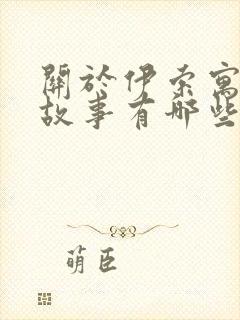 關於伊索寓
故事有哪些
萌臣